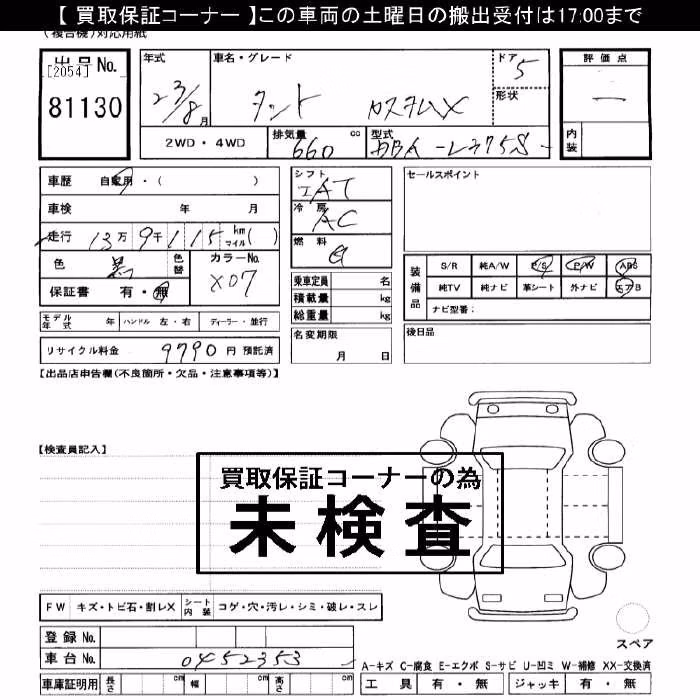 【 買取保証コーナー 】この車両の土曜日の搬出受付は17:00まで
(複合機)対応用紙
出品 No. [2054]
81130
年式 23/8月
車名・グレード タント カスタムX
ドア 5
形状
評価点 —
内装
2WD・4WD
排気量 660 cc
型式 DBA-L375S
車歴 自家用・( )
車検 年 月
走行 13万9千115 km マイル( )
色 黒 色替
カラーNo. X07
保証書 有・無
シフト IAT
冷房 AC
燃料 G
乗車定員 名
積載量 kg
総重量 kg
セールスポイント
装備品 S/R 純A/W P/S P/W ABS
純TV 純ナビ 革シート 外ナビ エアB
ナビ型番:
モデル年式 年 ハンドル 左・右 ディーラー・並行
名変期限 月 日
後日品
リサイクル料金 9790 円 預託済
【出品店申告欄(不良箇所・欠品・注意事項等)】
【検査員記入】
買取保証コーナーの為
未検査
FW キズ・トビ石・割レX シート内装 コゲ・穴・汚レ・シミ・破レ・スレ
登録 No.
車台 No. 0452353
スペア
A-キズ C-腐食 E-エクボ S-サビ U-凹ミ W-補修 XX-交換済
車庫証明用 長さ cm 幅 cm 高さ cm
工具 有・無 ジャッキ 有・無